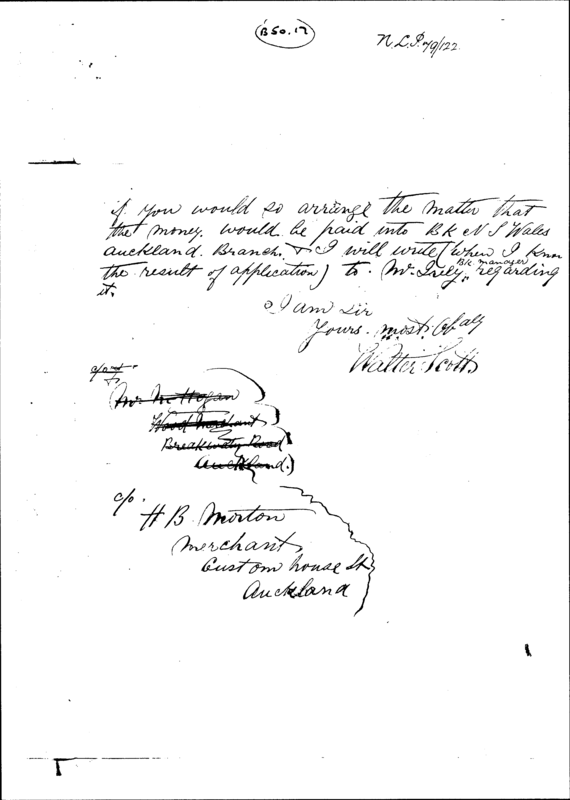 B50.17
N.L.P. 79/122.
if you would so arrange the matter that
the money would be paid into Bk N S Wales
Auckland. Branch. & I will write (when I know
the result of application) to. Mr. Bk. manager regarding
it.
I am Sir
Yours. most. Ob aly
Walter Scott
c/o
Mr McHogan
Wood Merchant
Breakwater Road
Auckland.)
c/o.
H B Morton
Merchant,
Custom house St
Auckland